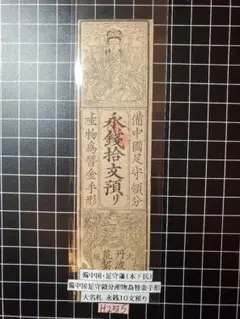 備中國足守領分
永錢拾文預り
産物爲替金手形
丹波
備中国・足守藩(木下氏)
備中国足守領分産物為替金手形
大名札 永銭10文預り